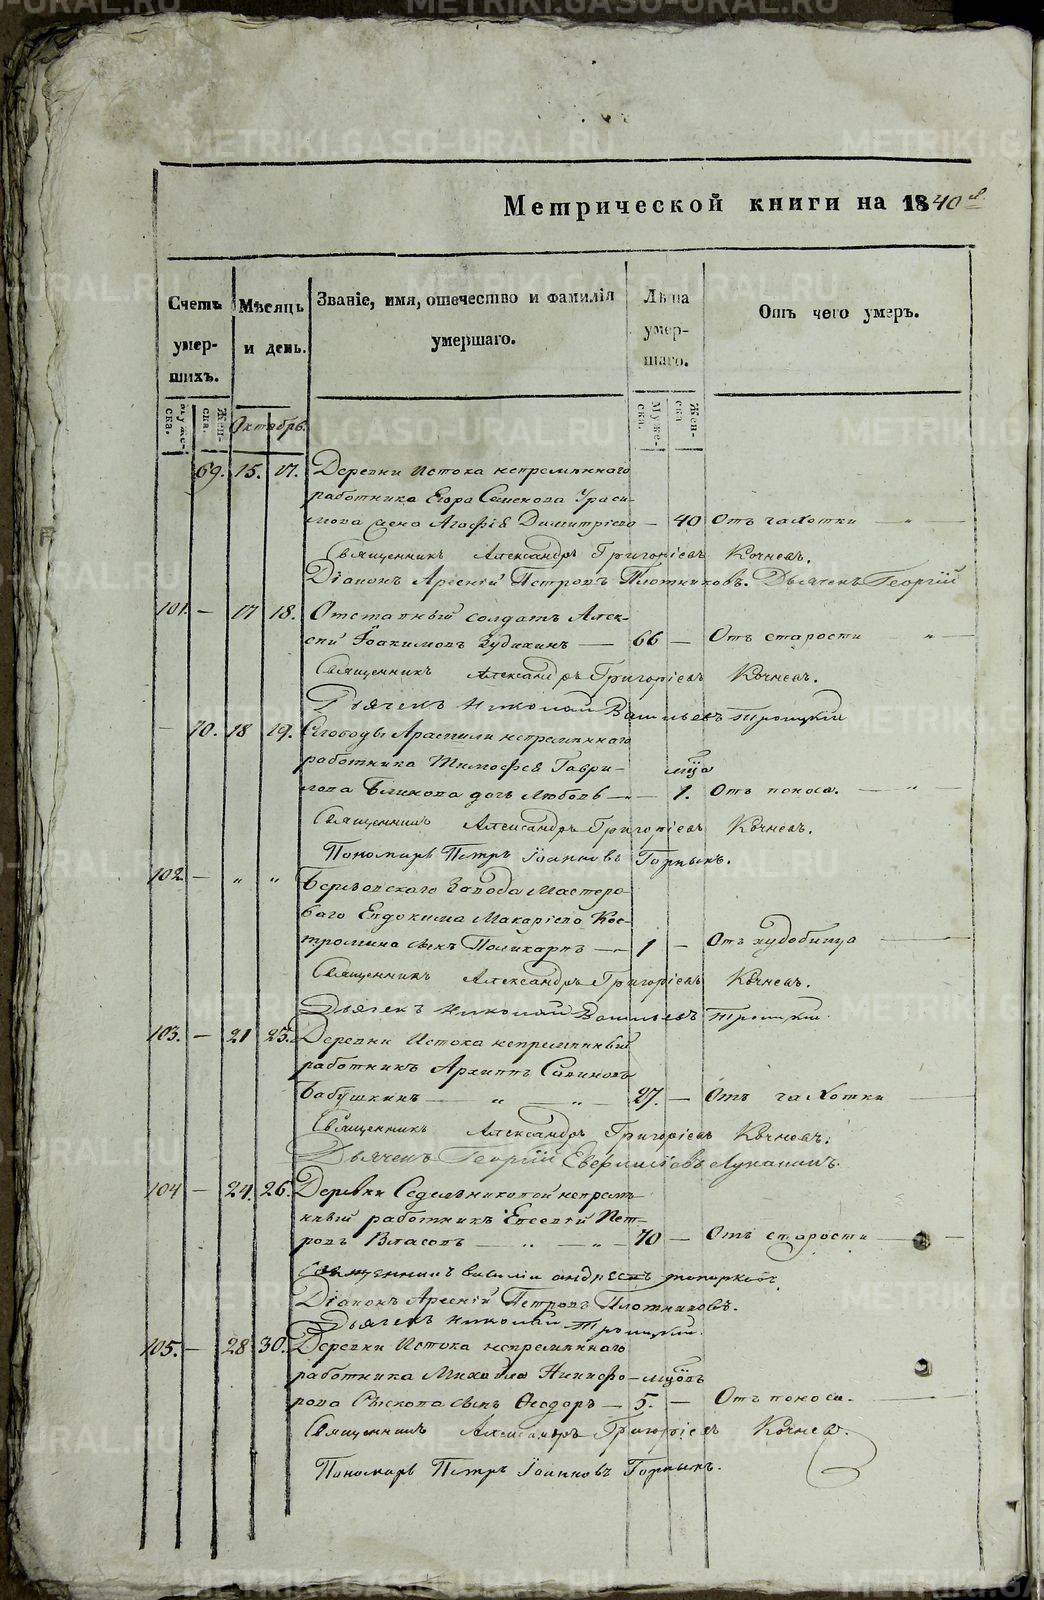 METRIKI.GASO-URAL.RU
Метрической книги на 1840й
Счетъ умер- шихъ.
Мѣсяцъ и день.
Званіе, имя, отечество и фамилія умершаго.
Лѣта умер- шаго.
Отъ чего умеръ.
Муже- ска.
Жен- ска.
Октябрь.
Муже- ска.
Жен- ска
69. 15. 17. Деревни Истока непремѣннаго
работника Егора Семенова
жена Агафія Димитріева — 40 Отъ чахотки
Священникъ Александръ Григоріевъ Кочневъ.
Діаконъ Арсеній Петровъ Плотниковъ. Дьячекъ Георгій
101. — 17 18. Отставный солдатъ Алек-
сѣй Іоакимовъ — 66 — Отъ старости
Священникъ Александръ Григоріевъ Кочневъ.
Дьячекъ Николай Васильевъ Троицкій
— 70. 18 19. Слободы Арамили непремѣннаго
работника Тимофея Гаври-
мца
лова Бликова дочь Любовь — 1. Отъ поноса.
Священникъ Александръ Григоріевъ Кочневъ.
Пономарь Петръ Іоанновъ Горныхъ.
102 — „ „ Березовскаго Завода Мастеро-
ваго Евдокима Макаріева Кос-
тромина сынъ Поликарпъ — 1 — Отъ худобища
Священникъ Александръ Григоріевъ Кочневъ.
Дьячекъ Николай Васильевъ Троицкій.
103. — 21 23. Деревни Истока непремѣнный
работникъ Архиппъ Савиновъ
Бабушкинъ — „ — „ — 27. — Отъ чахотки
Священникъ Александръ Григоріевъ Кочневъ.
Дьячекъ Георгій Лукановъ.
104 — 24. 26. Деревни Седельниковой непремѣ-
нный работникъ Евсевій Пет-
ровъ Власовъ — „ — „ — 70 — Отъ старости
Священникъ Василій Андреевъ
Діаконъ Арсеній Петровъ Плотниковъ.
Дьячекъ Николай Троицкій.
105. — 28 30. Деревни Истока непремѣннаго
работника Михайла Никифо- мцовъ
рова сынъ Ѳеодоръ — 5. — Отъ поноса.
Священникъ Александръ Григоріевъ Кочневъ.
Пономарь Петръ Іоанновъ Горныхъ.